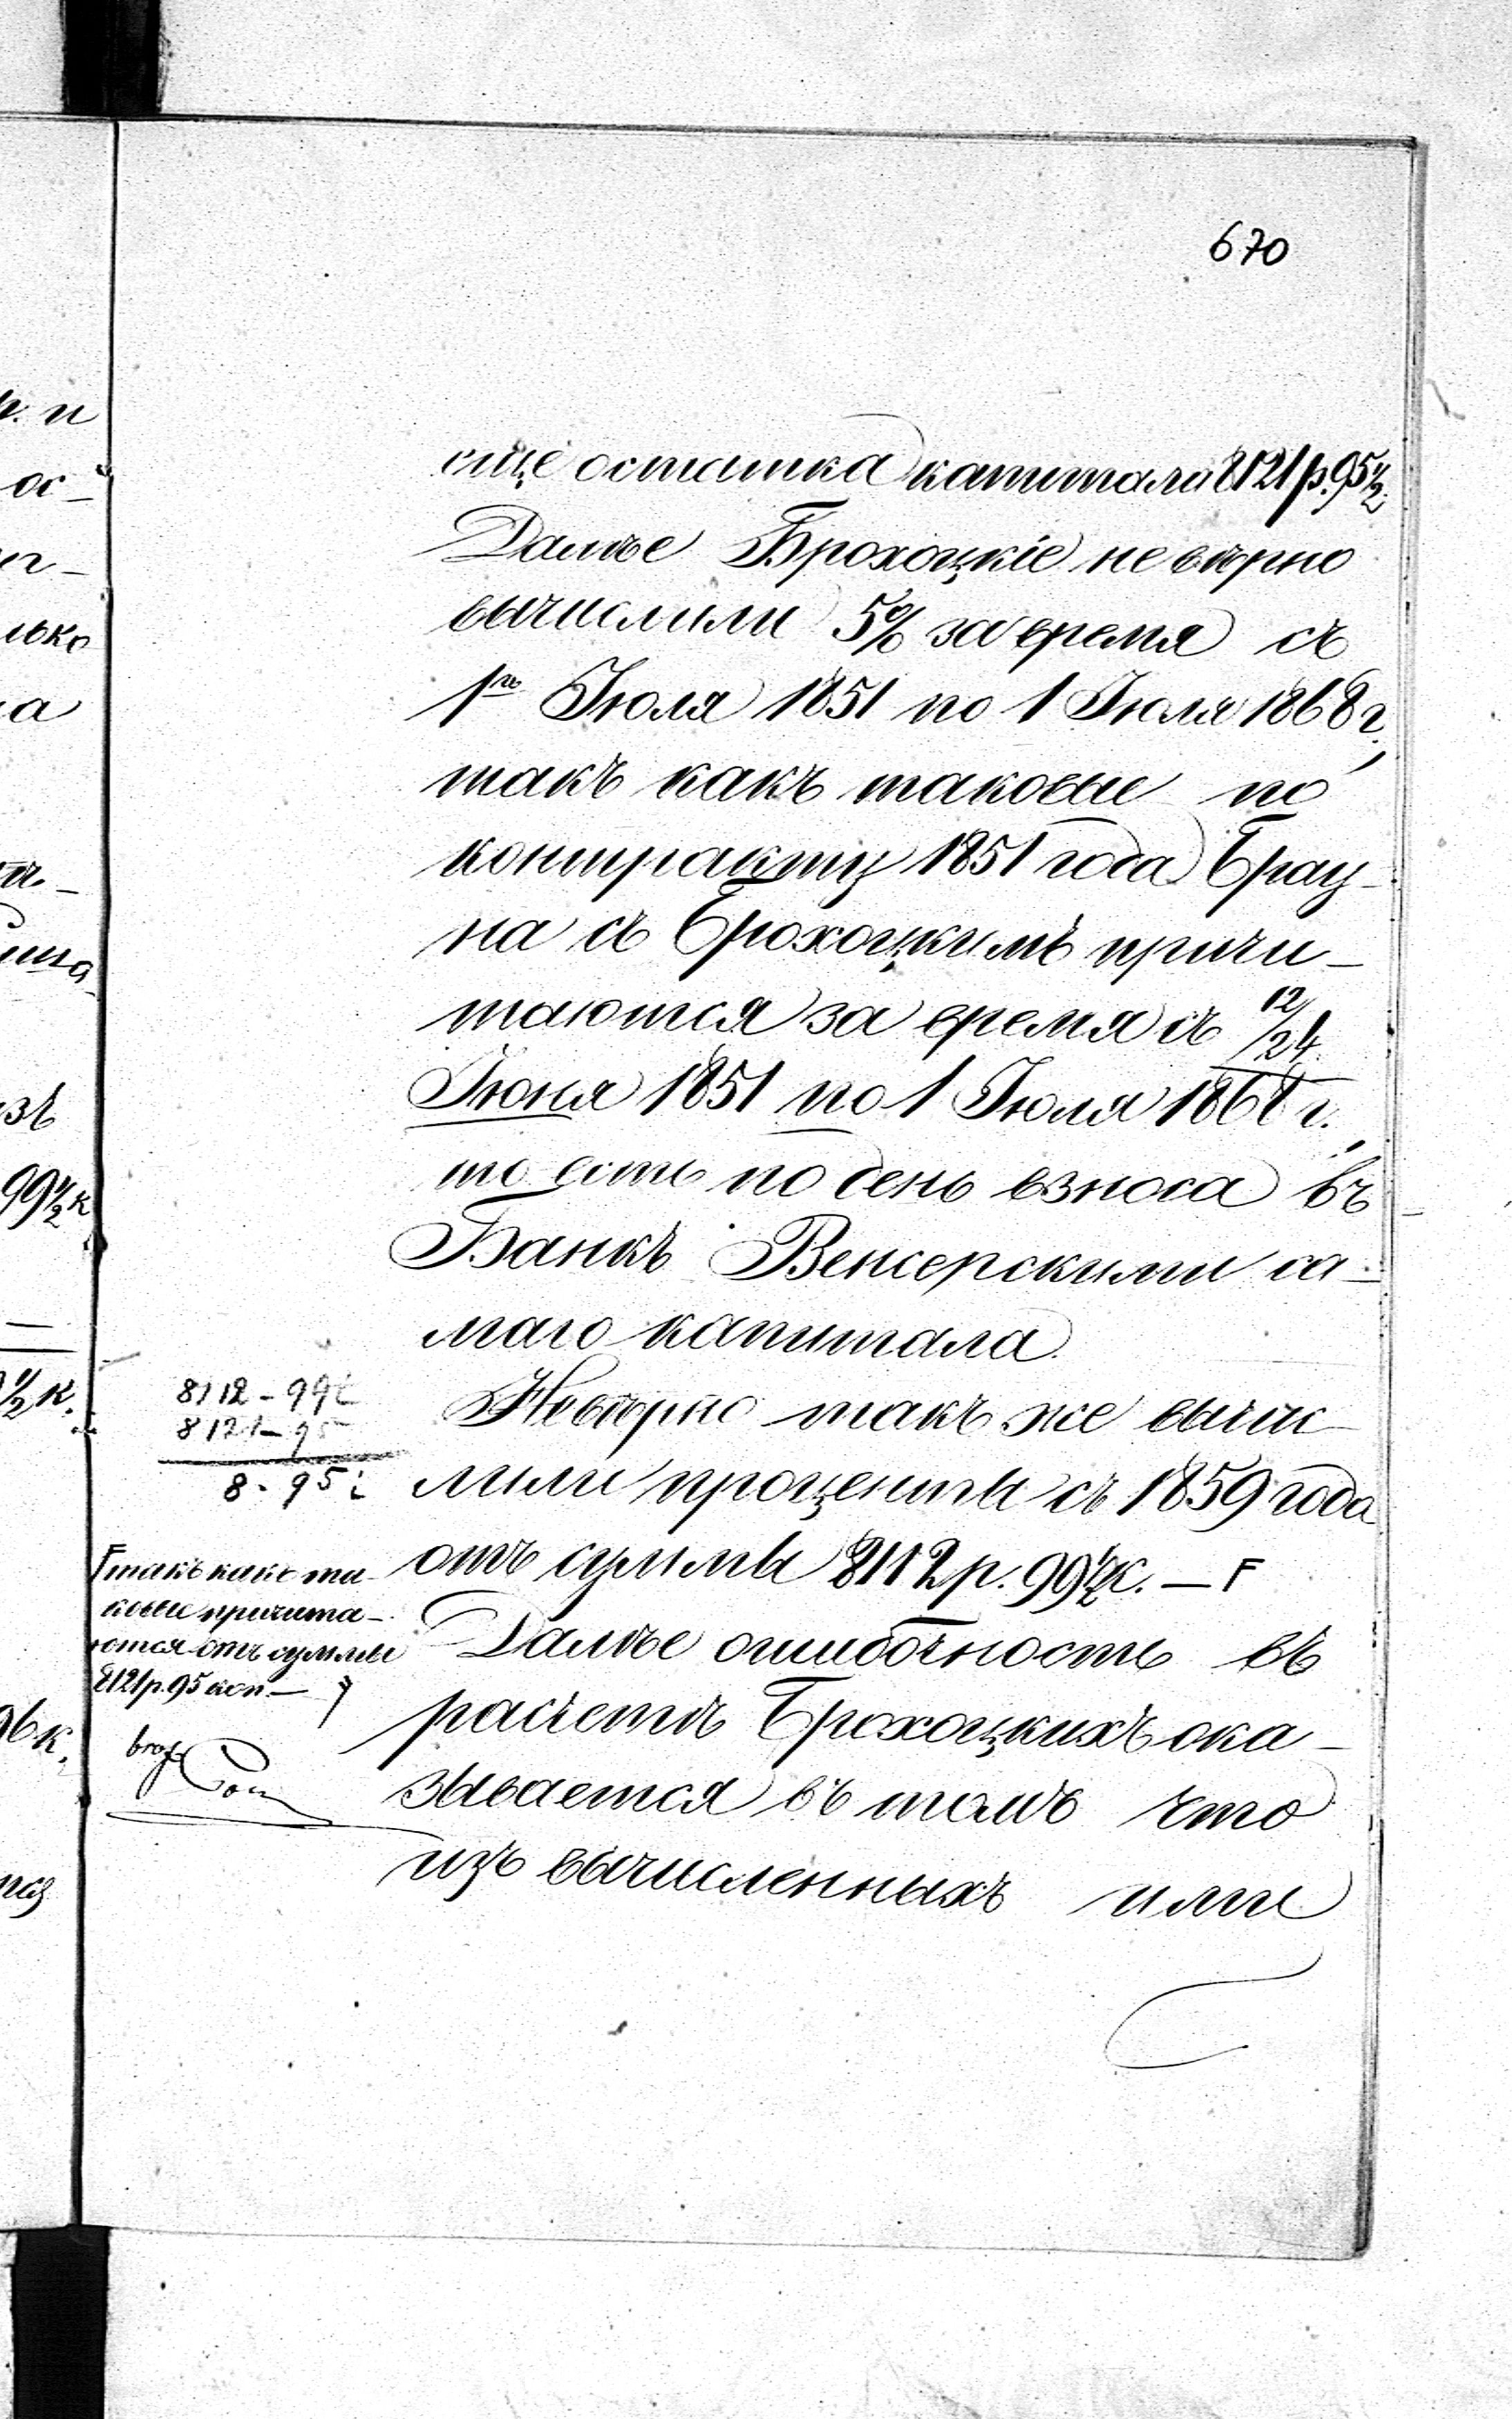 670
еще остатка капитала 8121 р. 95 1/2
Далѣе Брохоцкіе не вѣрно
вычислили 5% за время съ
1го Іюля 1851 по 1 Іюля 1868 г.,
такъ какъ таковые по
контракту 1851 года Брау-
на съ Брохоцкимъ причи-
таются за время съ 12/24
Іюня 1851 по 1 Іюля 1868 г.
то есть по день взноса въ
Банкъ Венсерскими са-
маго капитала.
Невѣрно такъ же вычис-
лили проценты съ 1859 года
отъ суммы 8112 р. 99 1/2 К. — F
Далѣе ошибочность въ
расчетѣ Брохоцкихъ ока-
зывается въ томъ что
изъ вычисленныхъ ими
8112 - 99
8121 - 95
8 - 95
F такъ какъ та-
ковые причита-
ются отъ суммы
8121 р. 95 коп —
р. и
ос-
лько
на
изъ
99 1/2 к
1/2 к.
96 к.